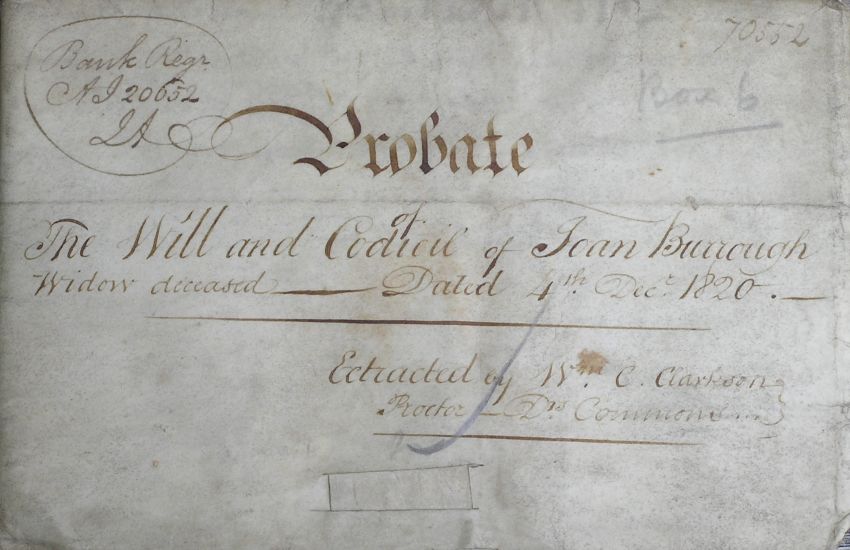 Bank Regr
AJ 20652
70552
Box 6
Probate
of
The Will and Codicil of Joan Burrough
Widow deceased — Dated 4th. Decr. 1820. —
Extracted by Wm. C. Clarkson
Proctor — Drs Commons